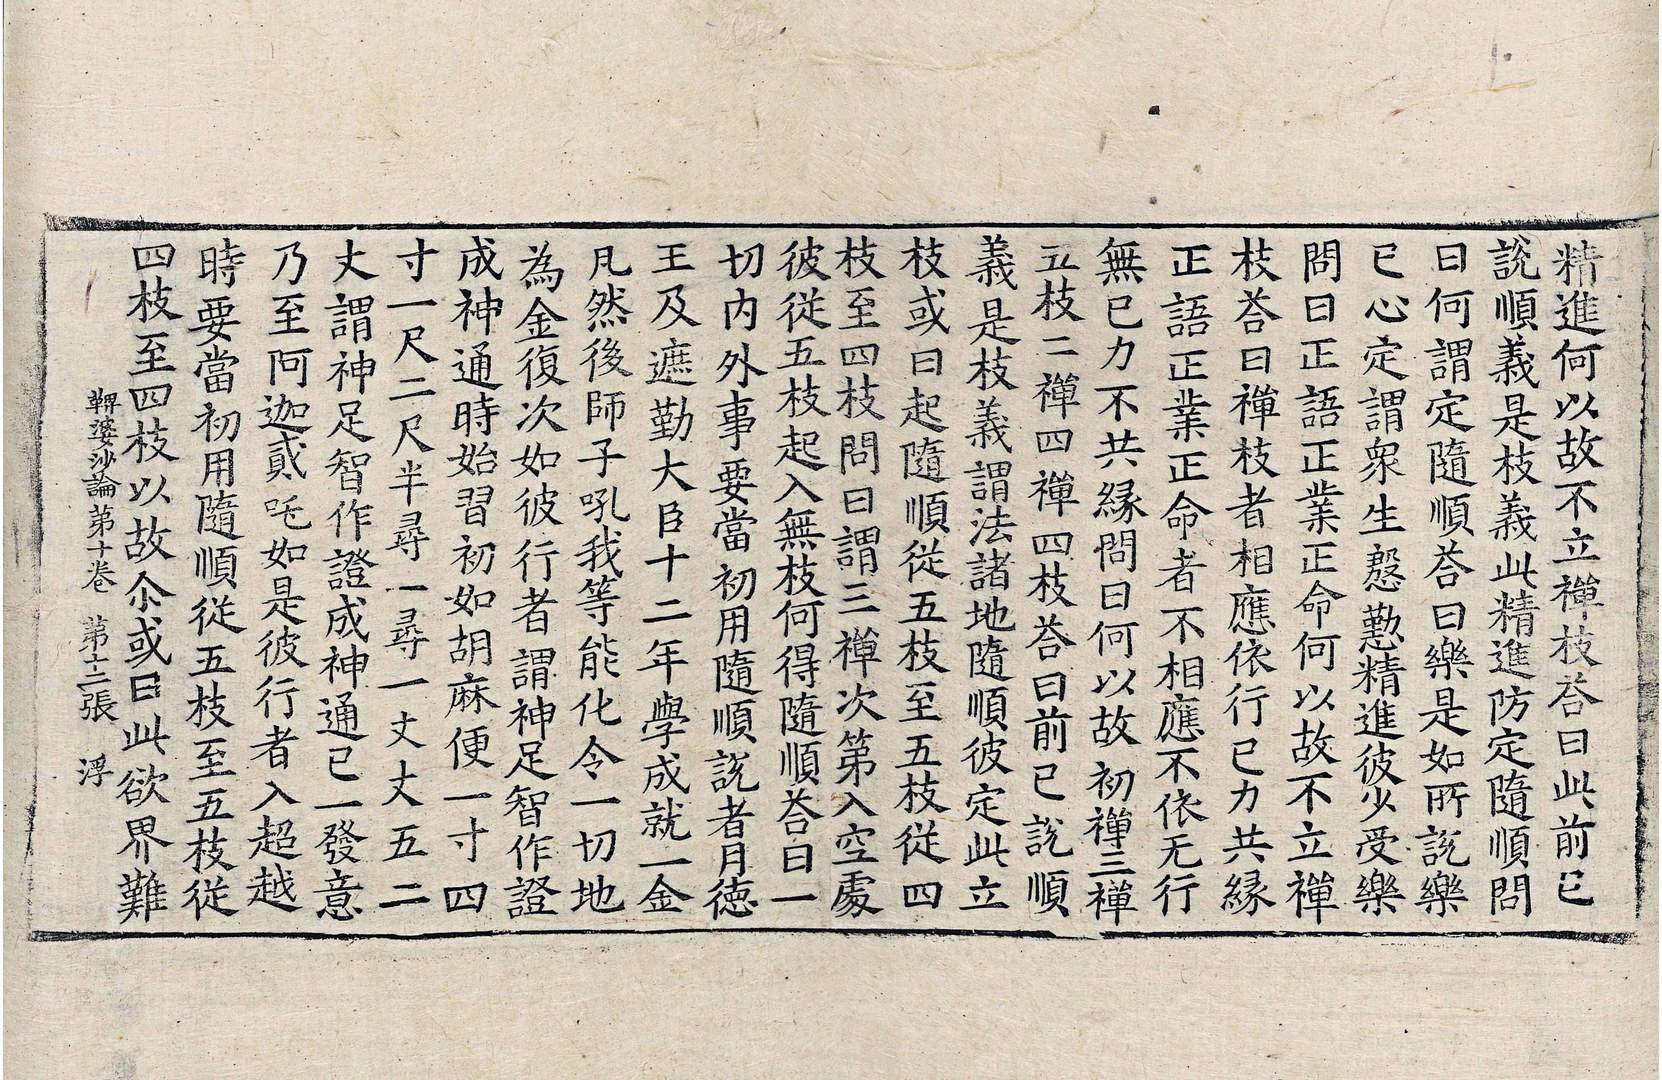 精進何以故不立禪枝荅曰此前已
說順義是枝義此精進防定隨順問
曰何謂定隨順荅曰樂是如所說樂
已心定謂衆生慇懃精進彼少受樂
問曰正語正業正命何以故不立禪
枝荅曰禪枝者相應依行已力共緣
正語正業正命者不相應不依无行
無已力不共緣問曰何以故初禪三禪
五枝二禪四禪四枝荅曰前已說順
義是枝義謂法諸地隨順彼定此立
枝或曰起隨順從五枝至五枝從四
枝至四枝問曰謂三禪次第入空處
彼從五枝起入無枝何得隨順荅曰一
切內外事要當初用隨順說者月德
王及遮勤大臣十二年學成就一金
凡然後師子吼我等能化令一切地
為金復次如彼行者謂神足智作證
成神通時始習初如胡麻便一寸四
寸一尺二尺半尋一尋一丈丈五二
丈謂神足智作證成神通已一發意
乃至阿迦貳吒如是彼行者入超越
時要當初用隨順從五枝至五枝從
四枝至四枝以故尒或曰此欲界難
鞞婆沙論第十卷 第十二張 浮